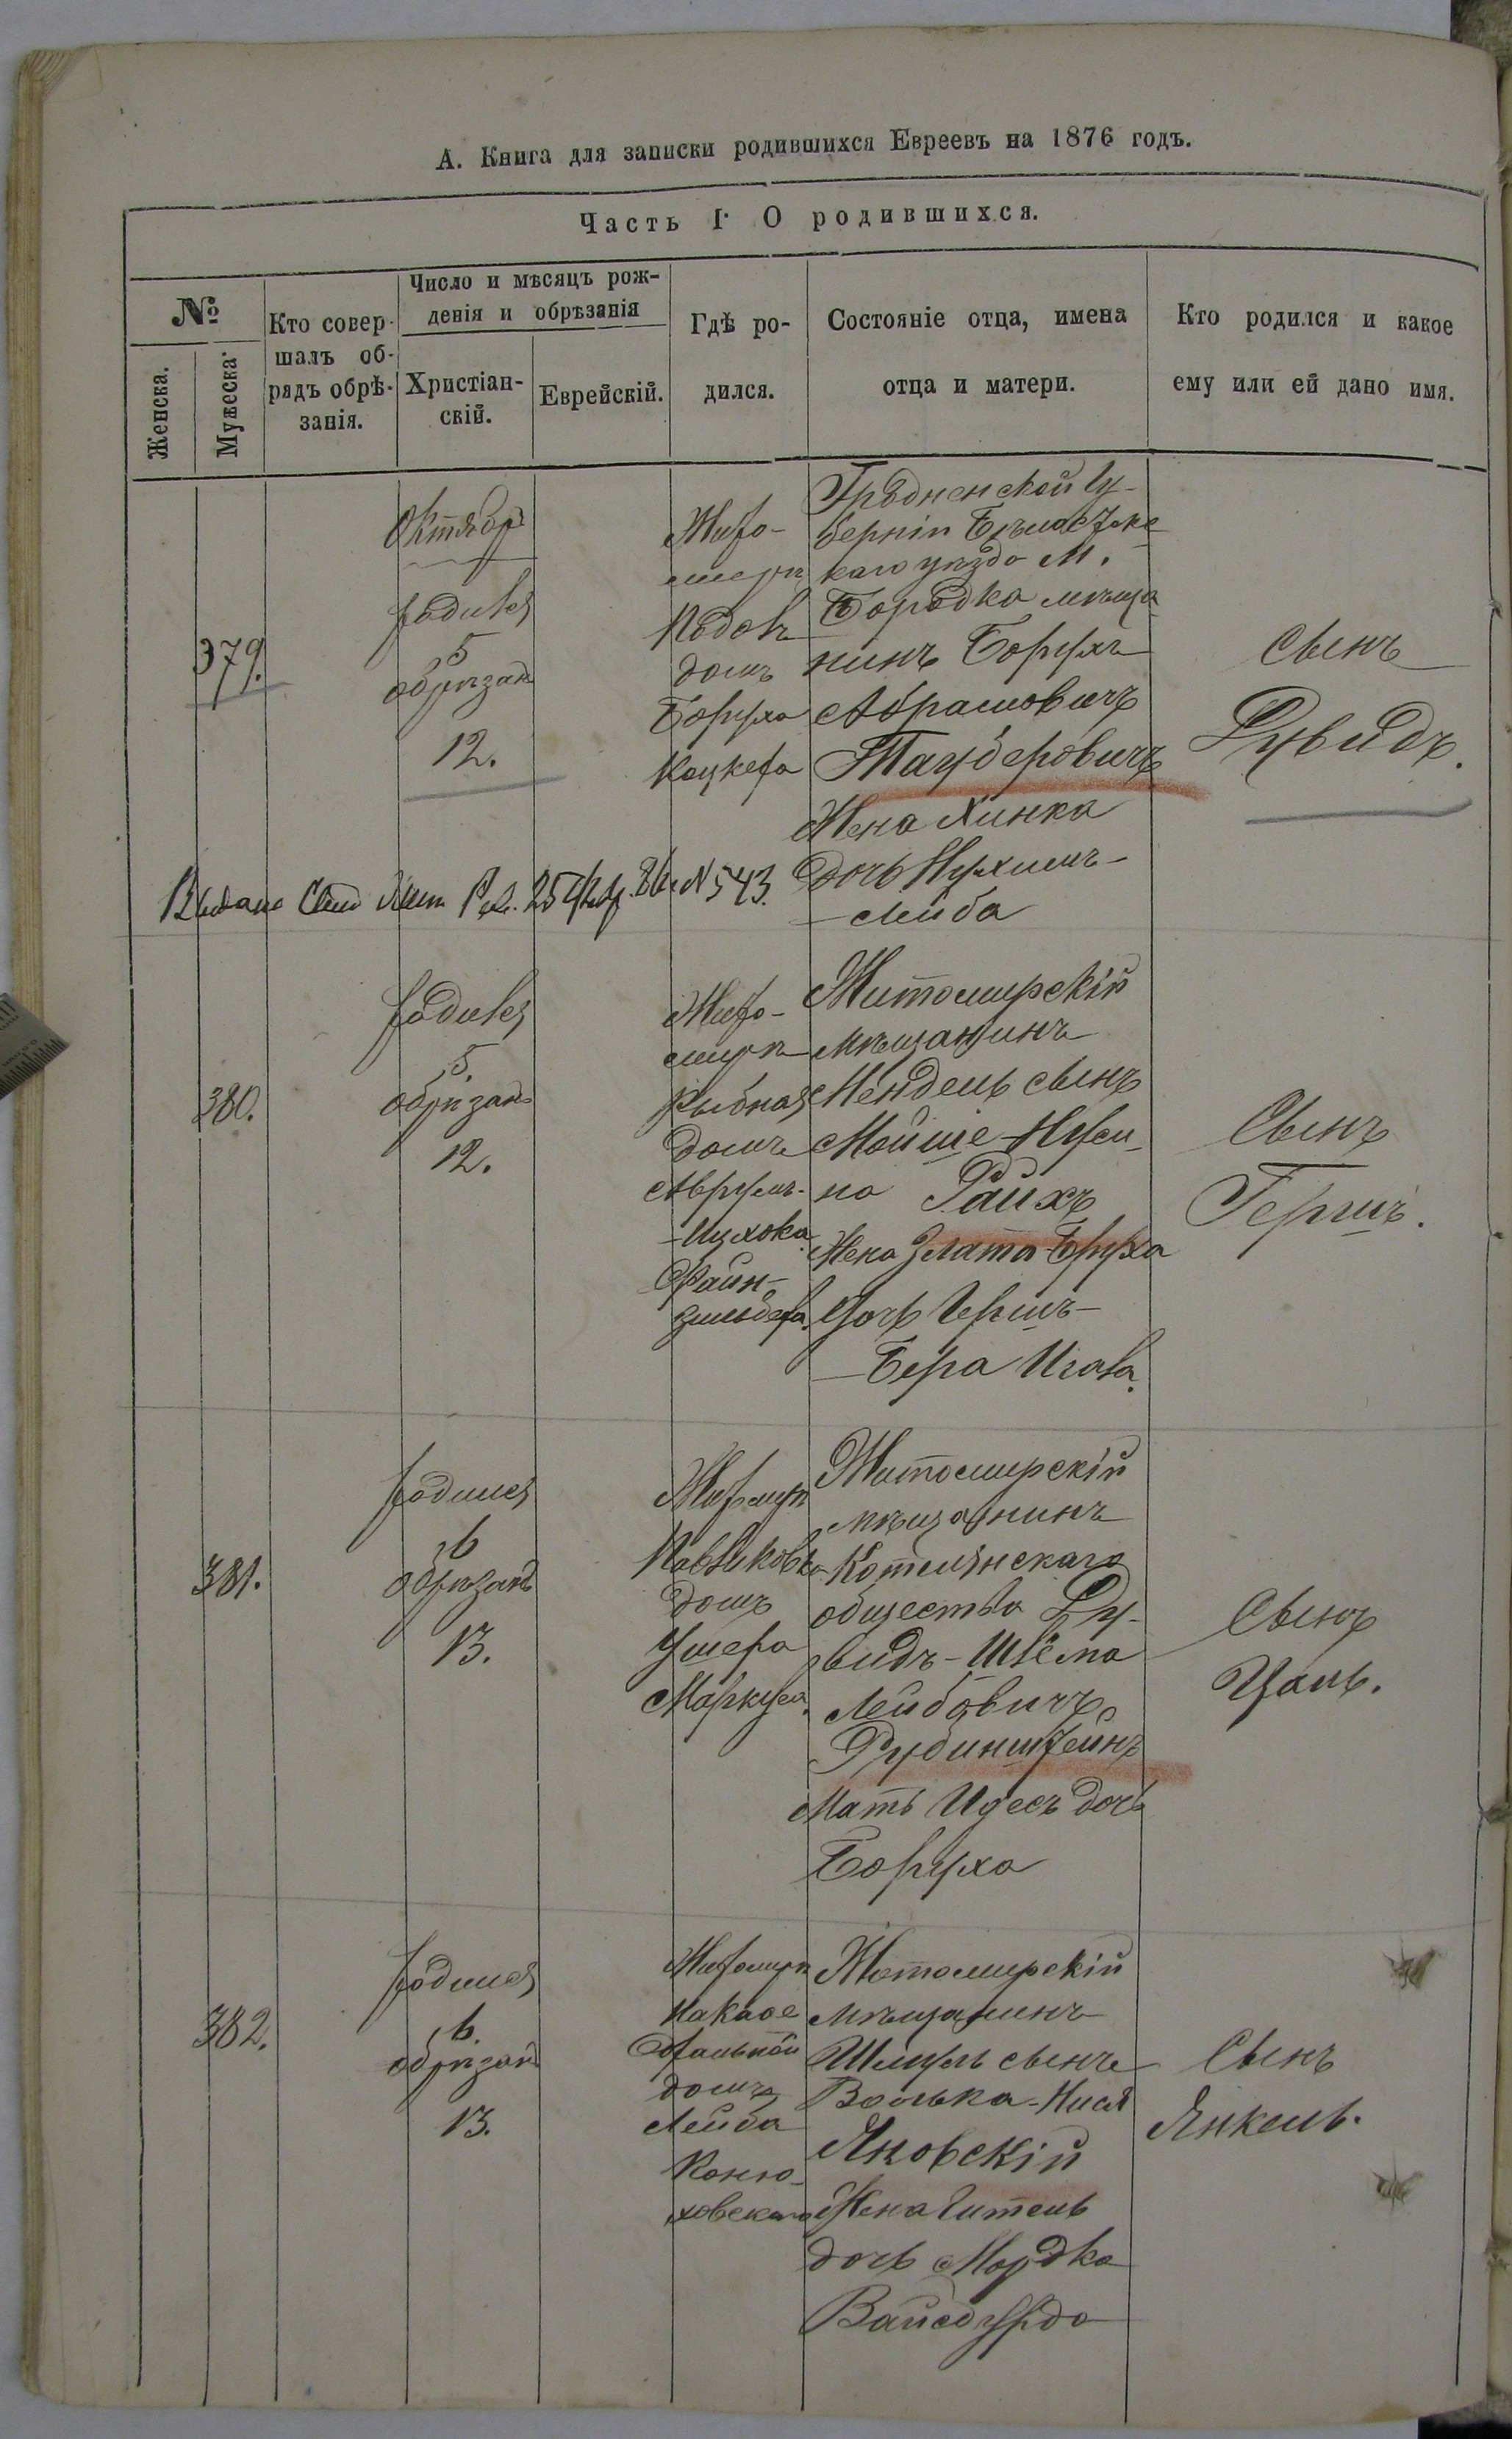 А. Книга для записки родившихся Евреевъ на 1876 годъ.
Часть I. О родившихся.
№
Женска.
Мужеска.
Кто совер-
шалъ об-
рядъ обрѣ-
занія.
Число и мѣсяцъ рож-
денія и обрѣзанія
Христіан-
скій.
Еврейскій.
Гдѣ ро-
дился.
Состояніе отца, имена
отца и матери.
Кто родился и какое
ему или ей дано имя.
379.
Октябрь
родился
5
обрѣзанъ
12.
Жито-
мирѣ
домъ
Боруха
Коцкера
Гродненской гу-
берніи Бѣлосток-
каго уѣзда М.
Городка мѣща
нинъ Борухъ
Абрамовичъ
Тауберовичъ
Жена Хинка
дочь Нухимъ-
-Лейба
Сынъ
Дувидъ.
Выдано 25 86 №543.
380.
родился
5.
обрѣзанъ
12.
Жито-
мирѣ
Рыбная
домъ
Аврумъ-
-Ицхока
Файн-
зильбера.
Житомирскій
мѣщанинъ
Мендель сынъ
Мойше-Нуси-
на Райхъ
Жена Злата-Бруха
дочь Герш-
-Бера
Сынъ
Гершъ.
381.
родился
6
обрѣзанъ
13.
Житомирѣ
домъ
Ушера
Маркуса.
Житомирскій
мѣщанинъ
Котелянскаго
общества Ду-
видъ-Шлёма
Лейбовичъ
Рубинштейнъ
Мать Идесъ дочь
Боруха
Сынъ
Цаль.
382.
родился
6.
обрѣзанъ
13.
Житомирѣ
домъ
Лейба
Коню-
ховскаго
Житомирскій
мѣщанинъ
Шмуль сынъ
Волька-Нися
Яновскій
Жена Гитель
дочь Мордка
Сынъ
Янкель.